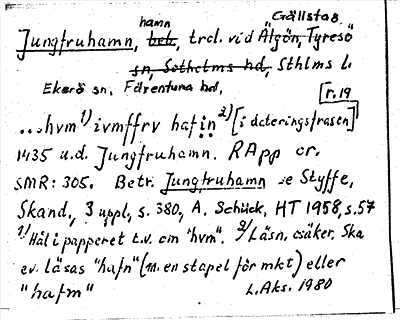 hamn Gällstaö
Jungfruhamn, beb., trol. vid Älgön, Tyresö
sn, Sotholms hd, Sthlms l.
Ekerö sn, Färentuna hd,
[r.19
...hvm 1) ivmffrv hafin 2) [i dateringsfrasen]
1435 u.d. Jungfruhamn. RApp or.
SMR: 305. Betr. Jungfruhamn se Styffe,
Skand., 3 uppl, s. 380, A. Schück, HT 1958, s. 57
1) Hål i papperet t.v. om "hvm". 2) Läsn. osäker. Ska
ev. läsas "hafn" (m. en stapel för mkt) eller
"hafm" L. Aks. 1980